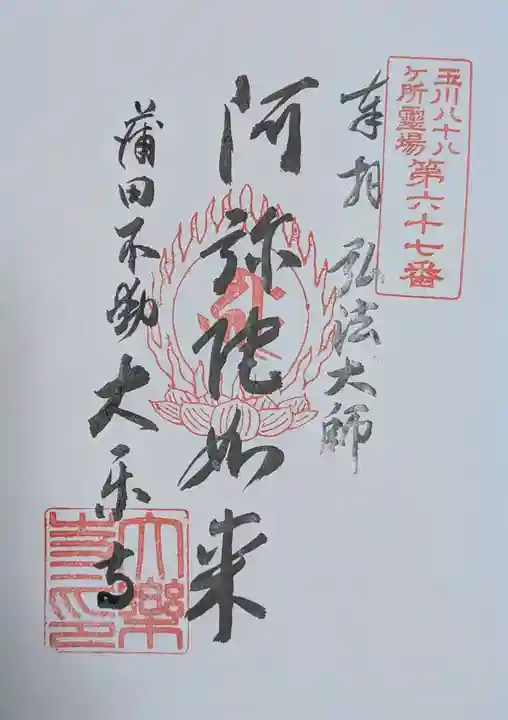 玉川八十八
ヶ所霊場 第六十七番
奉拝 弘法大師
阿弥陀如来
蒲田不動 大乐寺
大樂
寺印